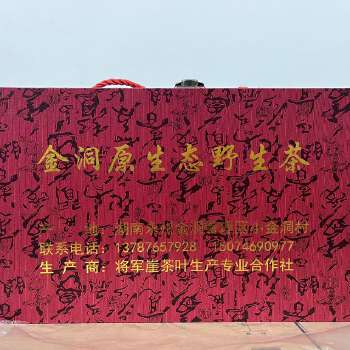 金洞原生态野生茶
产 地：湖南永州金洞管理区小金洞村
联系电话：13787657928 18074690977
生 产 商：将军崖茶叶生产专业合作社